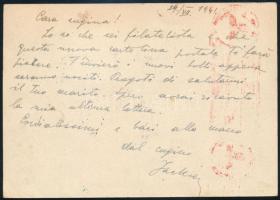 24/XI. 1941
Cara cugina!
Lo so che sei filatelista e che
questa nuova cartolina postale ti farà
piacere. T'invierò i nuovi bolli appena
saranno usciti. Ti prego di salutarmi
il tuo marito. Spero avrai ricevuto
la mia ultima lettera.
Cordialissimi e baci alla mano
dal cugino